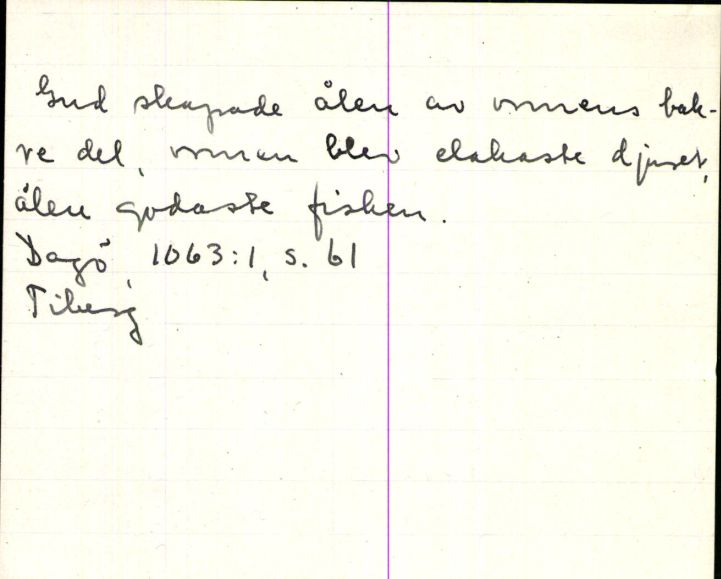 Gud skapade ålen av ormens bak-
re del, ormen blev elakaste djuret,
ålen godaste fisken.
Dagö, 1063:1, s. 61
Tiberg